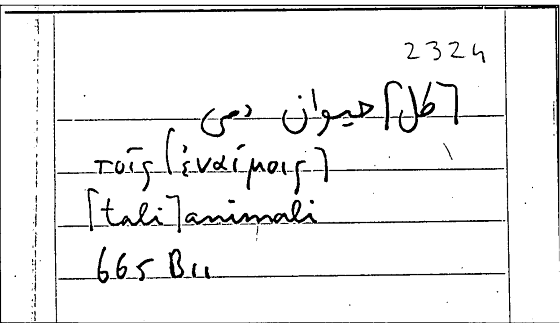 2324
[كل] حيوان دمى
τοῖς [ἐναίμοις]
[tali] animali
665 B11